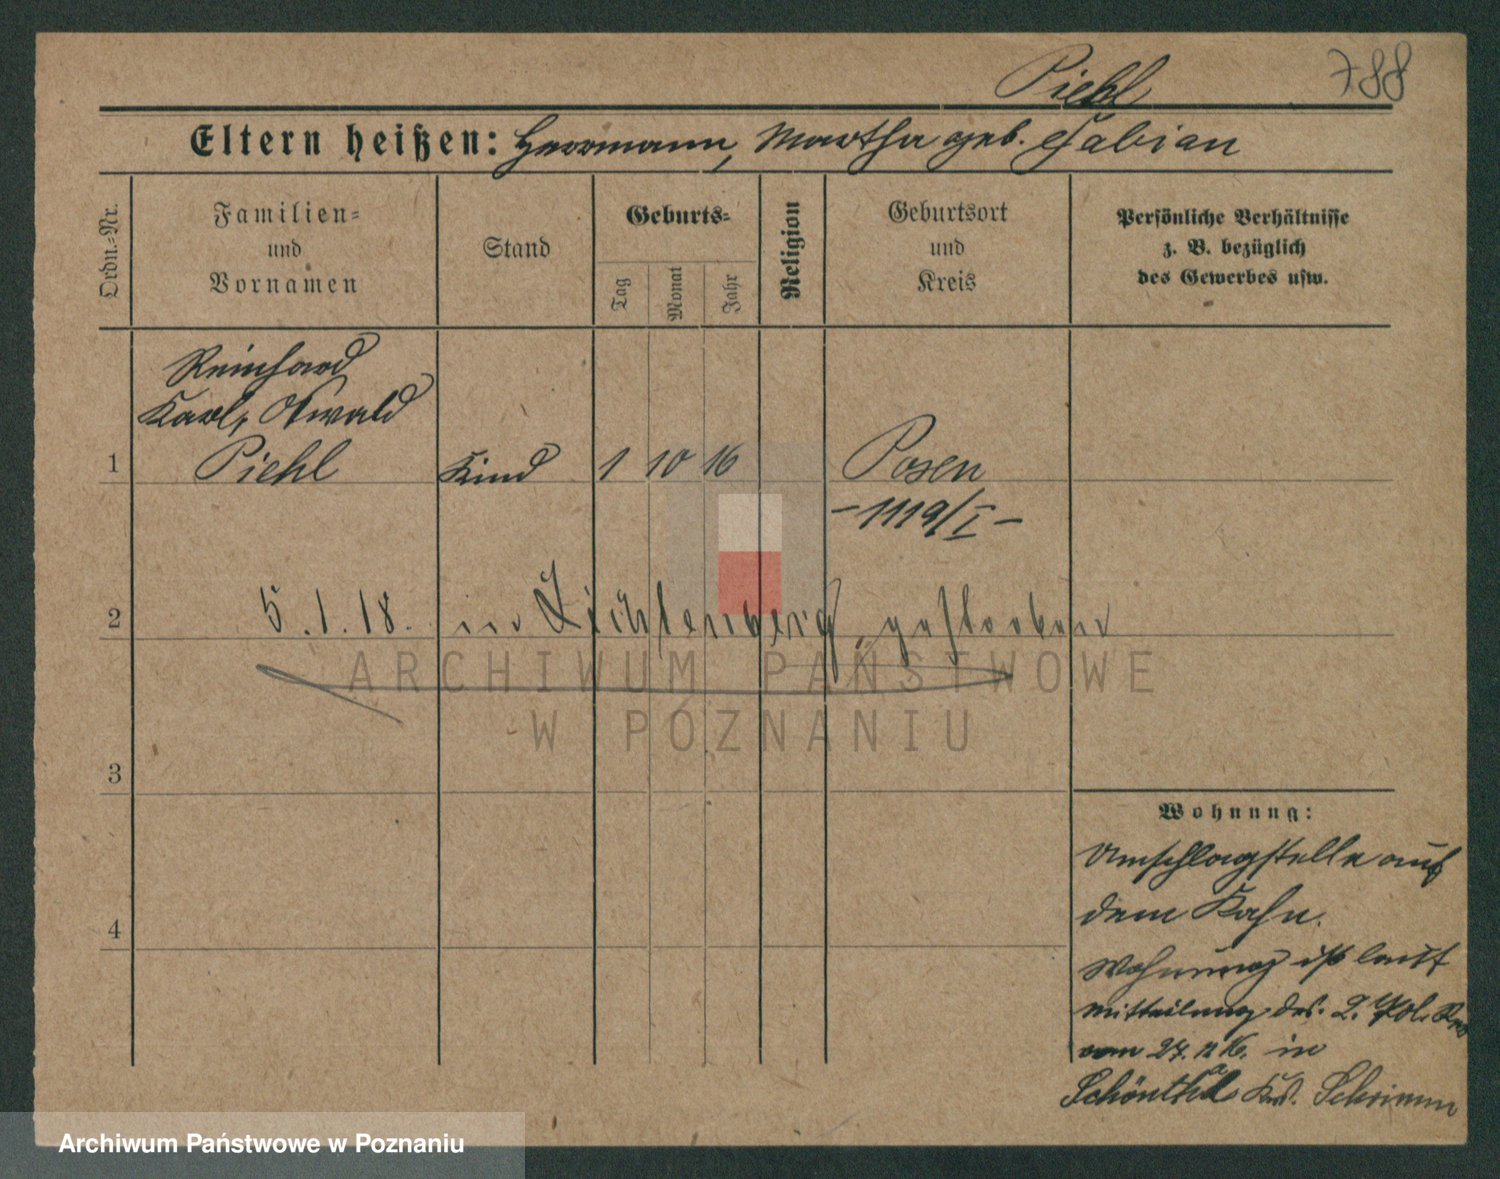 Piehl
788
Eltern heißen: Herrmann, Martha geb. Fabian
Ordn.-Nr.
Familien-
und
Vornamen
Stand
Geburts-
Tag
Monat
Jahr
Religion
Geburtsort
und
Kreis
Persönliche Verhältnisse
z. B. bezüglich
des Gewerbes usw.
Reinhard
Karl, Oswald
1 Piehl Kind 1 10 16 Posen
- 1119/I -
2 5.1.18. in Lichtenberg gestorben
3
4
Wohnung:
Umschlagstelle auf
dem Kahn.
Wohnung ist laut
Mitteilung des 2. Pol. Rev.
vom 27. 12 16. in
Schönthal Krs. Schrimm
ARCHIWUM PAŃSTWOWE
W POZNANIU
Archiwum Państwowe w Poznaniu